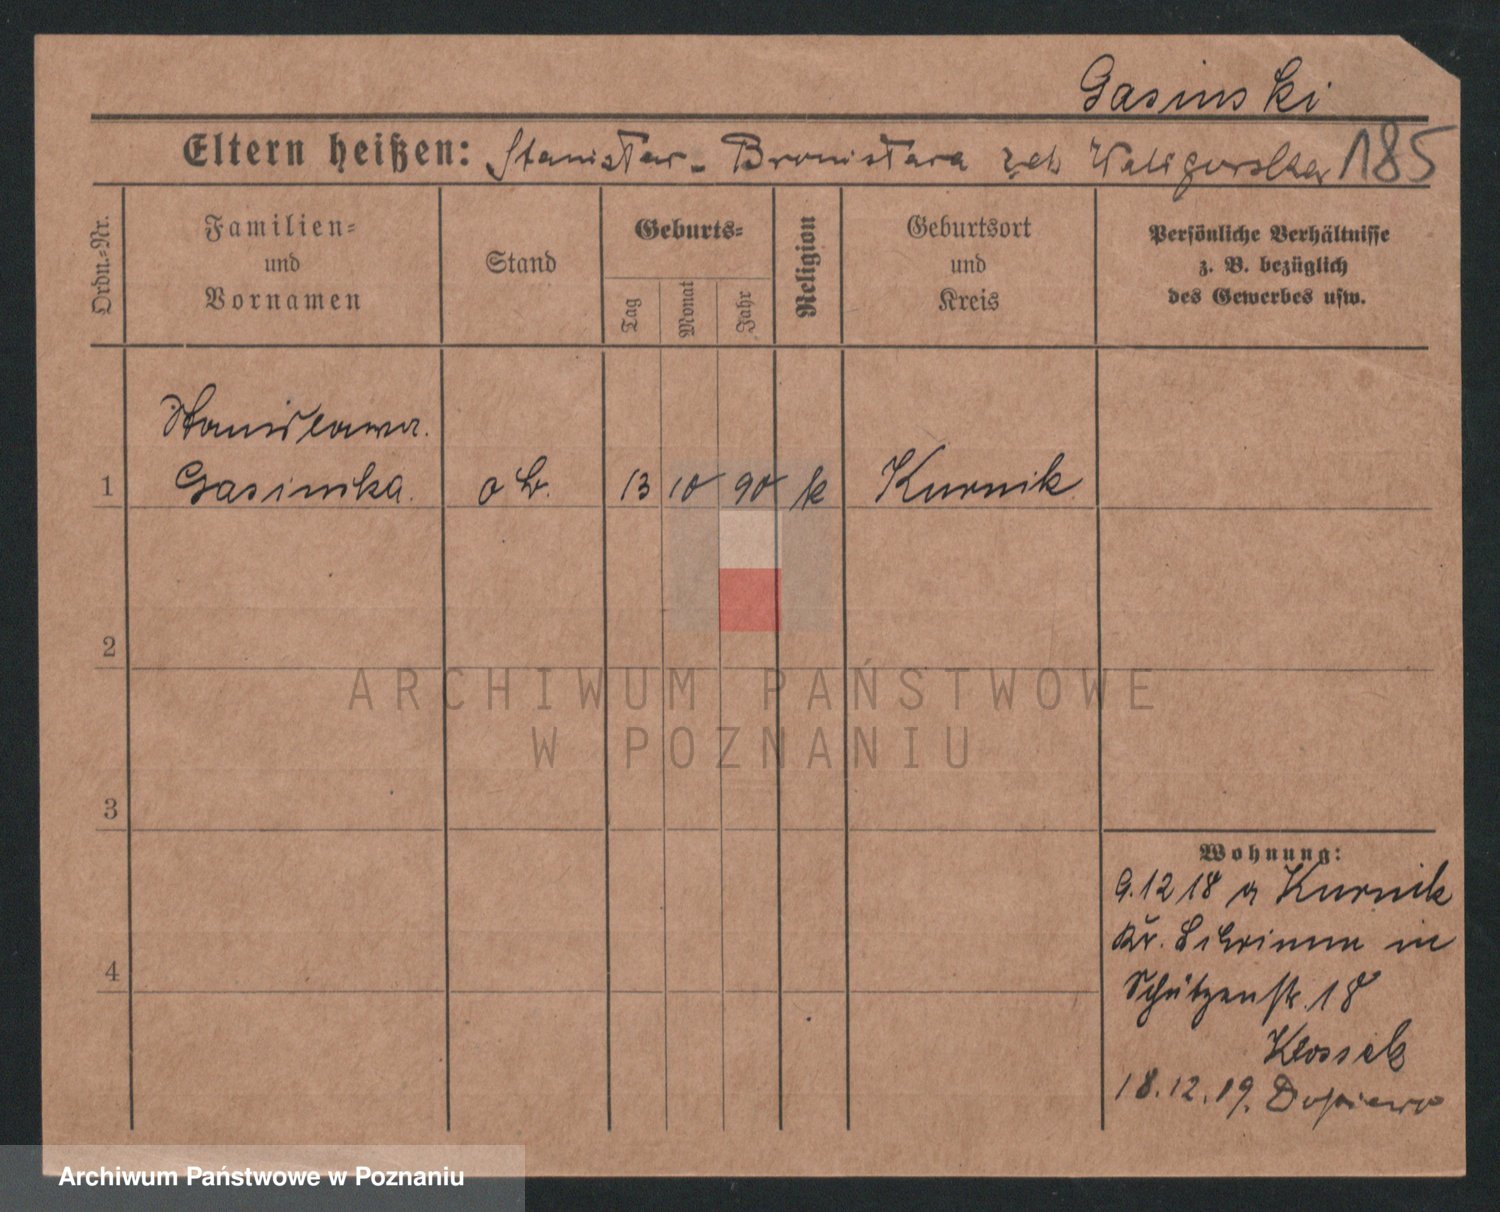 Gasinski
Eltern heißen: Stanisław - Bronisława geb Waligorska 185
Ordn.-Nr.
Familien-
und
Vornamen
Stand
Geburts-
Tag
Monat
Jahr
Religion
Geburtsort
und
Kreis
Persönliche Verhältnisse
z. B. bezüglich
des Gewerbes usw.
Stanisława
1 Gasinska. 13 10 90 k Kurnik
2
3
4
Wohnung:
9.12 18 a Kurnik
Kr. Schrimm in
Schützenstr. 18
Klossek
18.12.19. Dopiewo
ARCHIWUM PAŃSTWOWE
W POZNANIU
Archiwum Państwowe w Poznaniu